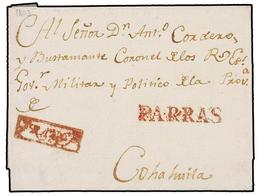 Al Señor Dn Anto. Cordero,
y Bustamante Coronel de los Rs. Exos.
Govr. Militar y Politico de la Prova.
de
PARRAS
FRANCO
Cohahuila